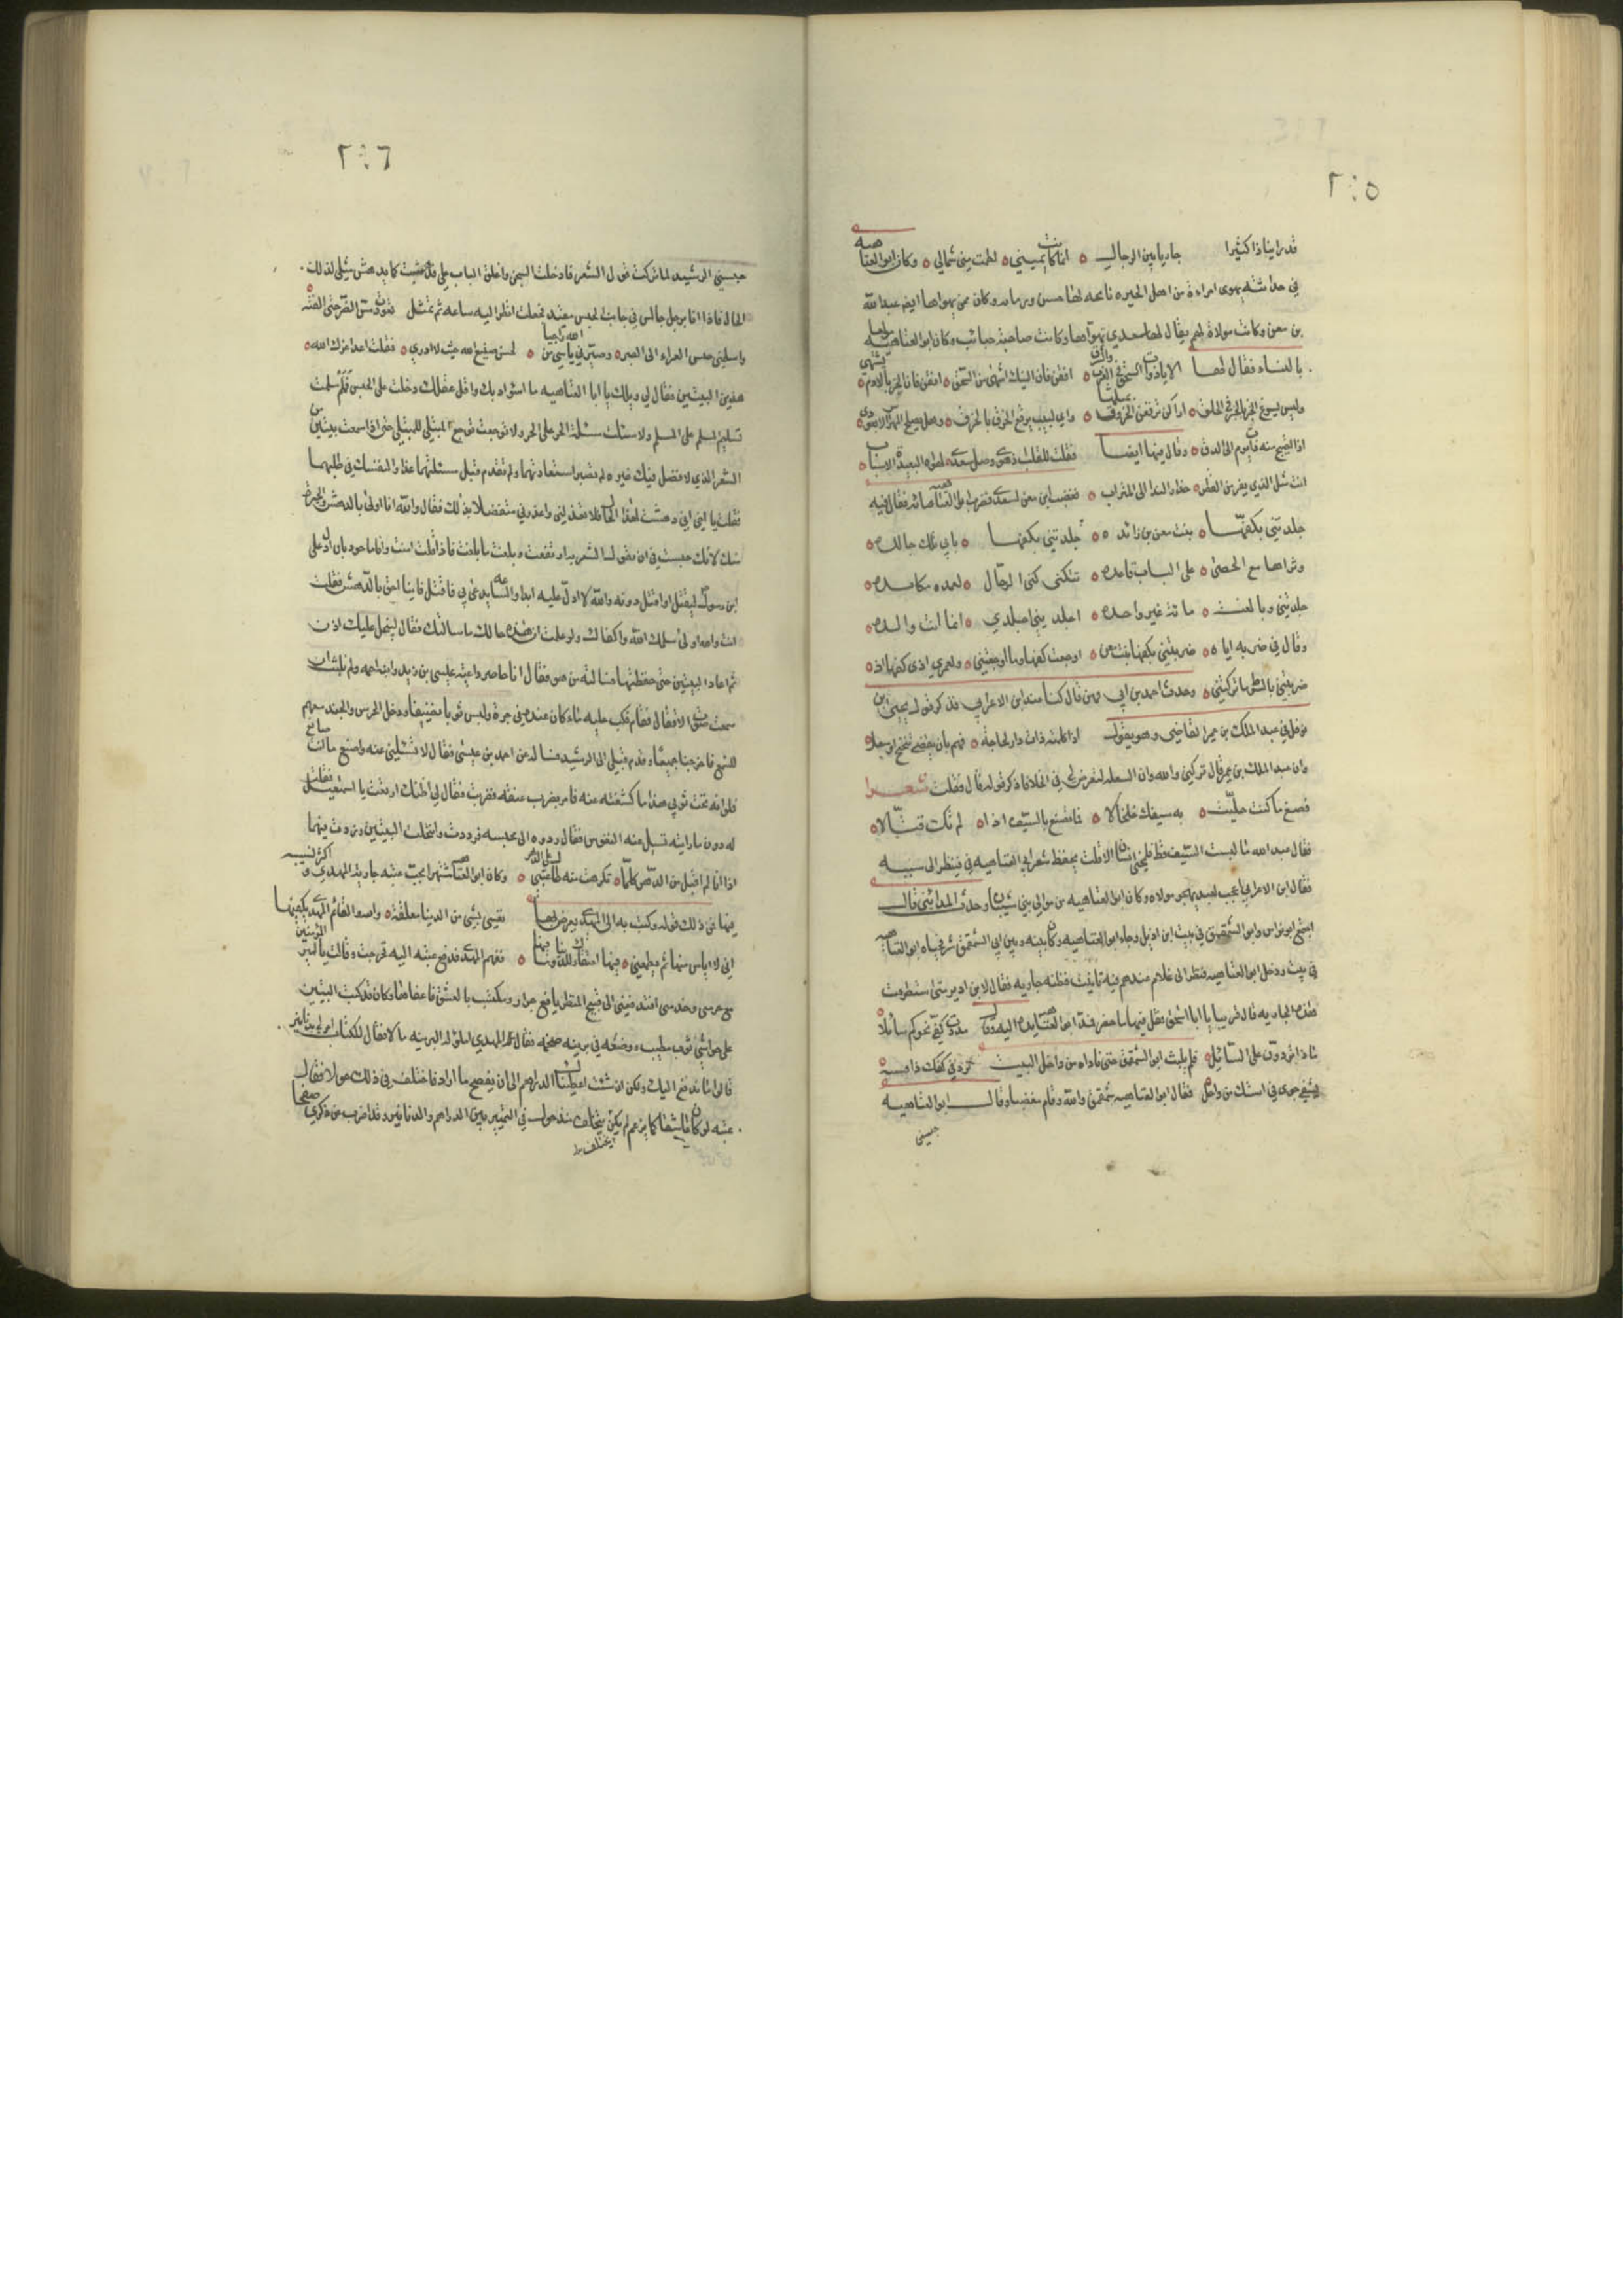 ٢٠٥
قد راينا ذا كثيرا جاريا بين الرجال ٥ انما كانت يميني ٥ لطمت مني شمالي ٥ وكان ابو العتاهيه
في حداثته يهوى امراءة من اهل الحيره نائحه لها حسن وكان ممن يهواها ايضا عبدالله
بن معن وكانت مولاة لهم يقال لها سعدي وكانت صاحبة حبائب وكان ابو العتاهيه
بالنساء فقال لها الا يا ذوات السحق في الغرب والشرق ٥ افقن فان النيك اشهى من السحق ٥ افقن فان الخبز بالادم يشتهى ٥
وليس يسوغ الخبز بالخبز في الحلق ٥ اراكن ترقعن الخروق بمثلها ٥ واي لبيب يرقع الخرق بالخرق ٥ وهل يصلح المهراس الا بعوده ٥
اذا احتيج منه يوم الى الدق ٥ وقال فيها ايضا فقلت للقلب
انت مثل الذي يفر من القطر ٥ حذار الندا الى الميزاب ٥ فغضب ابن معن لسعدى فضرب ابا العتاهيه مائه فقال فيه
جلدتني بكفها ٥ بنت معن بن زائده ٥٥ جلدتني بكفها ٥ بابي تلك جالده ٥
وتراها مع الخصى ٥ على الباب قاعده ٥ تتكنى كنى الرجال ٥ لعمده مكايده ٥
جلدتني وبالغت ٥ مائة غير واحده ٥ اجلديني اجلدي ٥ انما انت والده ٥
وقال في ضربه اياه ٥ ضربتني بكفها بنت معن ٥ اوجعت كفها وما اوجعتني ٥ ولعمري اذى كفها اذ ٥
ضربتني بالسوط ما تركتني ٥ وحدث احمد بن ابي قال كنا عند ابن الاعرابي فذكر قول يحيى بن
نوفل في عبدالملك بن عمير القاضي وهو يقول اذا كلمته ذات دل لحاجة ٥ فهم بان يقضي تنحنح او سعل ٥
وان عبدالملك بن عمير قال تركني والله وان السعله لتعرض لي في الخلا فاذكر قوله قال فقلت شعرا
فصغ ما كنت حليت ٥ به سيفك خلخالا ٥ فما تصنع بالسيف اذا ٥ لم تك قتالا ٥
فقال عبدالله ما لبست السيف قط فلمحني انسان الا قلت يحفظ شعر ابي العتاهيه في فينظر الي بسببه
فقال ابن الاعرابي اعجب لعبد يهجو مولاه وكان ابو العتاهيه من موالي بني شيبان وحدث المدائني قال
اجتمع ابو نواس وابو الشمقمق في بيت ابن اذين وجاء ابو العتاهيه وكان بينه وبين ابي الشمقمق شر فخباه ابو العتاهيه
في بيت ودخل ابو العتاهيه فنظر الى غلام عندهم فيه تانيث فظنه جاريه فقال لابن اذين متى استطرفت
هذه الجاريه قال قريبا يا ابا اسحق فقل فيها ما حضر فمد ابو العتاهيه يده اليه وقال مددت كفي نحوكم سائلا ٥
ماذا تردون على السائل ٥ فلم يلبث ابو الشمقمق حتى ناداه من داخل البيت نرد في كفك ذا فيشة ٥
يشفي جوى في استك من داخل فقال ابو العتاهيه شمقمق والله وقام مغضبا وقال ابو العتاهيه
حبسني
٢٠٦
حبسني الرشيد لما تركت قول الشعر فادخلت السجن واغلق الباب علي فدهشت كما يدهش مثلي لذلك
الحال فاذا انا برجل جالس في جانب الحبس مقيد فجعلت انظر اليه ساعه ثم تمثل تعودت مس الضر حتى الفته ٥
واسلمني حسن العزاء الى الصبر ٥ وصيرني ياسي من الله راجيا ٥ لحسن صنيع الله من حيث لا ادري ٥ فقلت اعد اعزك الله ٥
هذين البيتين فقال لي ويلك يا ابا العتاهيه ما اسوا ادبك واقل عقلك دخلت علي الحبس فلم سلمت
تسليم المسلم على المسلم ولا سئلت مسئلة الحر على الحر ولا توجعت توجع المبتلى للمبتلى حتى اذا سمعت بيتين من
الشعر الذي لا فضل فيك غيره لم تصبر استعادتهما ولم تقدم قبل مسئلتهما عذرا لنفسك في طلبهما
فقلت يا اخي اني دهشت لهذا الحال فلا تعذلني واعذرني متفضلا بذلك فقال والله انا اولى بالدهش والحيرة
منك لانك حبست في ان تقول الشعر به ارتفعت وبلغت ما بلغت فاذا قلت امنت وانا ماخوذ بان ادل على
ابن رسول الله ليقتل او اقتل دونه والله لا ادل عليه ابدا والساعه يدعى بي فاقتل فاينا احق بالدهش فقلت
انت والله اولى سلمك الله وكفاك ولو علمت ان هذه حالك ما سالتك فقال لا نبخل عليك اذن
ثم اعاد البيتين حتى حفظتهما فسالته من هو فقال انا حاضر داعيه عيسى بن زيد وابنه احمد ولم نلبث ان
سمعت صوت الاقفال فقام فسكب عليه ماء كان عنده في جرة ولبس ثوبا نظيفا ودخل الحرس والجند معهم
الشمع فاخرجنا جميعا وقدم قبلي الى الرشيد فساله عن احمد بن عيسى فقال لا تسئلني عنه واصنع ما انت صانع
فلو انه تحت ثوبي هذا ما كشفته عنه فامر بضرب عنقه فضربت فقال لي اظنك ارتعت يا اسمعيل فقلت
له دون ما رايته تسيل منه النفوس فقال ردوه الى محبسه فرددت وانتحلت البيتين وزدت فيهما
اذا انا لم اقبل من الدهر كلما ٥ تكرهت منه طال عتبي على الدهر ٥ وكان ابو العتاهيه اشتهر بحب عتبه جاريه المهدي و اكثر نسيبه
فيها فمن ذلك قوله وكتب به الى المهدي يعرض بها نفسي بشي من الدنيا معلقة ٥ والله والقائم المهدي يكفيها
اني لاياس منها ثم يطمعني ٥ فيها احتقارك للدنيا وما فيها ٥ ففهم المهدي فدفع عتبه اليه فجزعت وقالت يا امير المؤمنين
مع حرمتي وخدمتي افتدفعني الى قبيح المنظر بايع جرار ومكتسب بالعشق فاعفاها وكان قد كتب البيتين
على حواشي ثوب مطيب ووضعه في برنيه ضخمه فقال المهدي املؤا له البرنيه مالا فقال للكتاب امر لي بدنانير
قالوا ما ندفع اليك ولكن ان شئت اعطيناك الدراهم الى ان يفصح بما اراد فاختلف في ذلك حولا فقالت
عتبه لو كان عاشقا كما يزعم لم يكن يختلف منذ حول في التمييز بين الدراهم والدنانير وقد اضرب عن ذكري صفحا